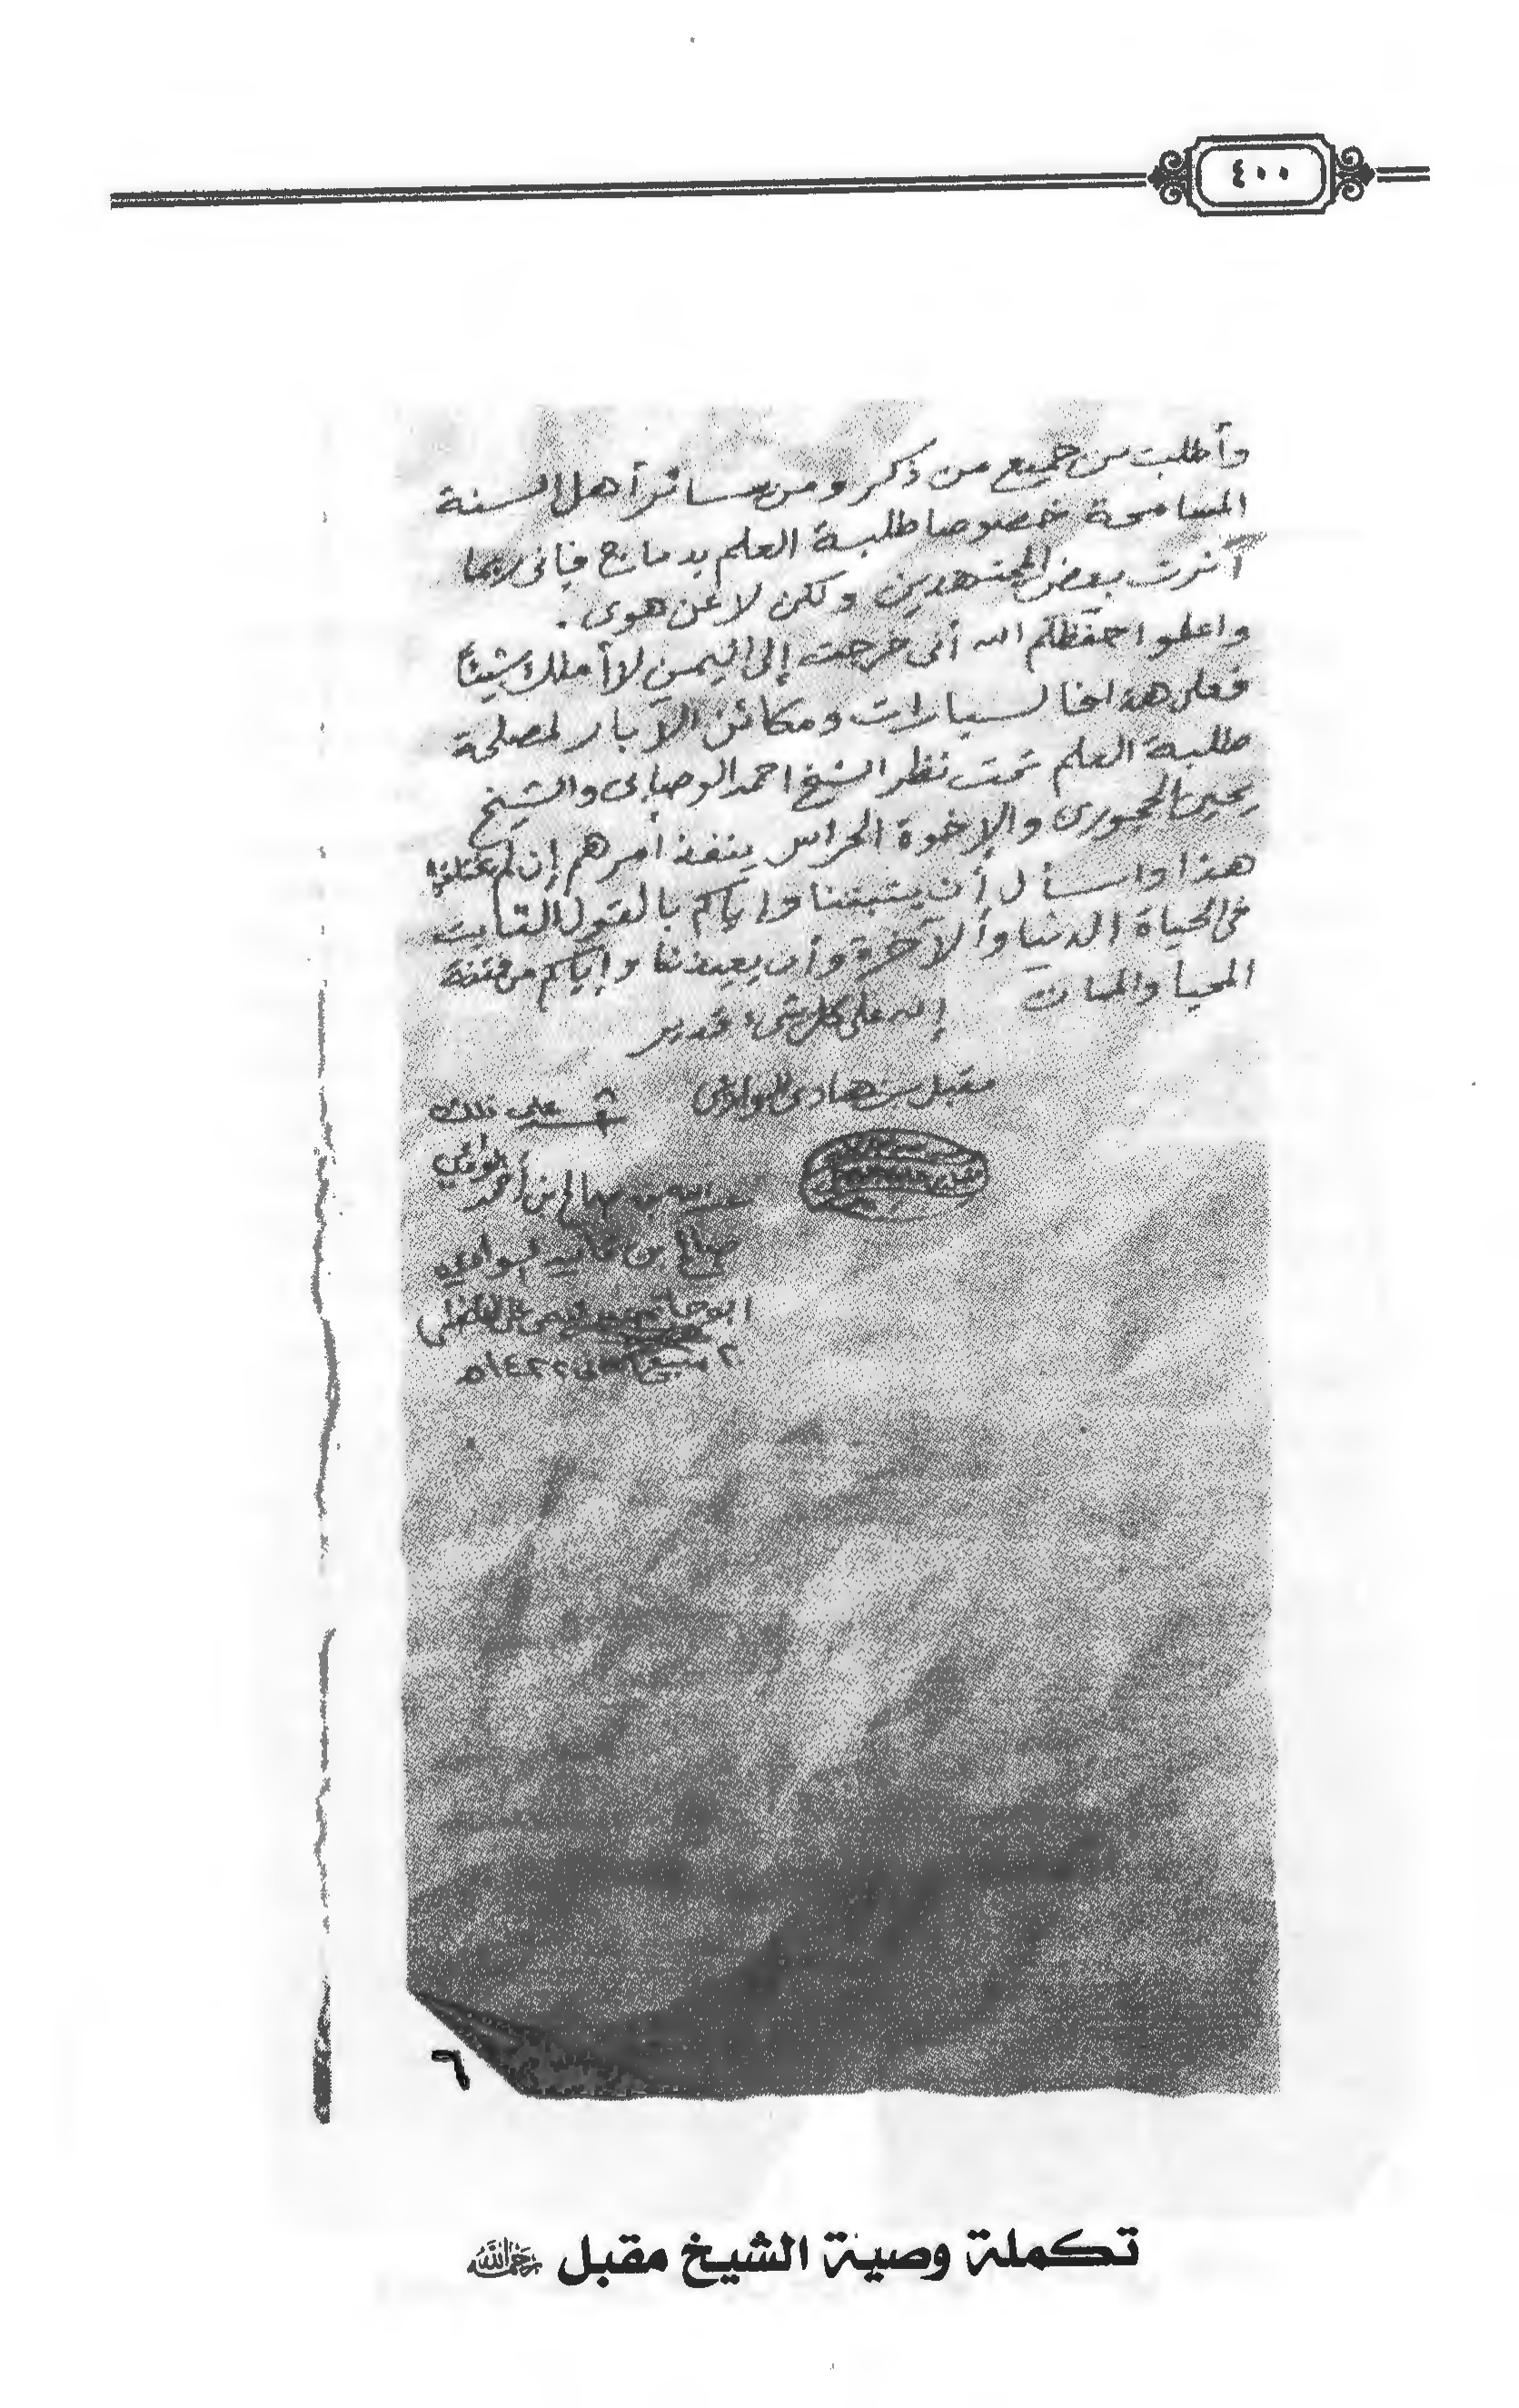 ٤٠٠
وأطلب من جميع من ذكر ومن سائر أهل السنة
المسامحة خصوصا طلبة العلم بدماج فإنى ربما
آثرت بعض المجتهدين ولكن لا عن هوى .
واعلموا حفظكم الله أنى خرجت إلى اليمن لا أملك شيئاً
فعلى هذا فالسيارات ومكائن الآبار لمصلحة
طلبة العلم تحت نظر الشيخ احمد الوصابى والشيخ
يحيى الحجورى والإخوة الحراس ينفذ أمرهم إن لم يختلفوا
هذا واسأل أن يثبتنا وإياكم بالقول الثابت
فى الحياة الدنيا والآخرة وأن يعيذنا وإياكم من فتنة
المحيا والممات إنه على كل شىء قدير
مقبل بن هادى الوادعى
شهد على ذلك
بن صالح بن أحمد
صالح بن قايد الوادعي
ابو حاتم
٢ ١٤٢٢هـ
٦
تكملة وصية الشيخ مقبل رحمه الله